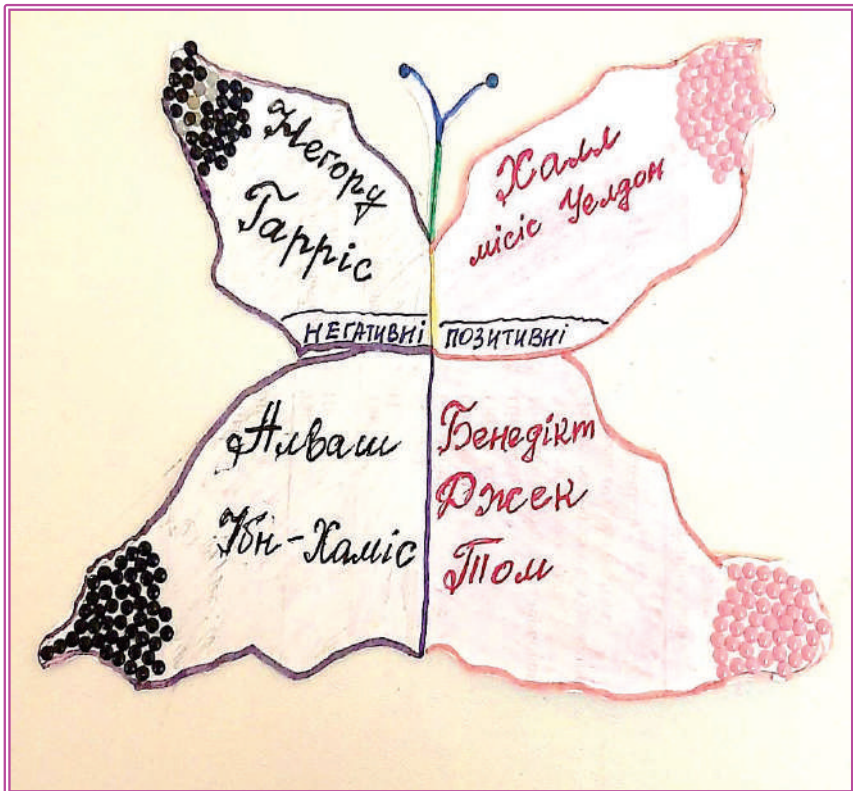 Негору
Гарріс
Халл
місіс Уелдон
НЕГАТИВНІ
ПОЗИТИВНІ
Алваш
Ібн-Хаміс
Бенедікт
Джек
Том